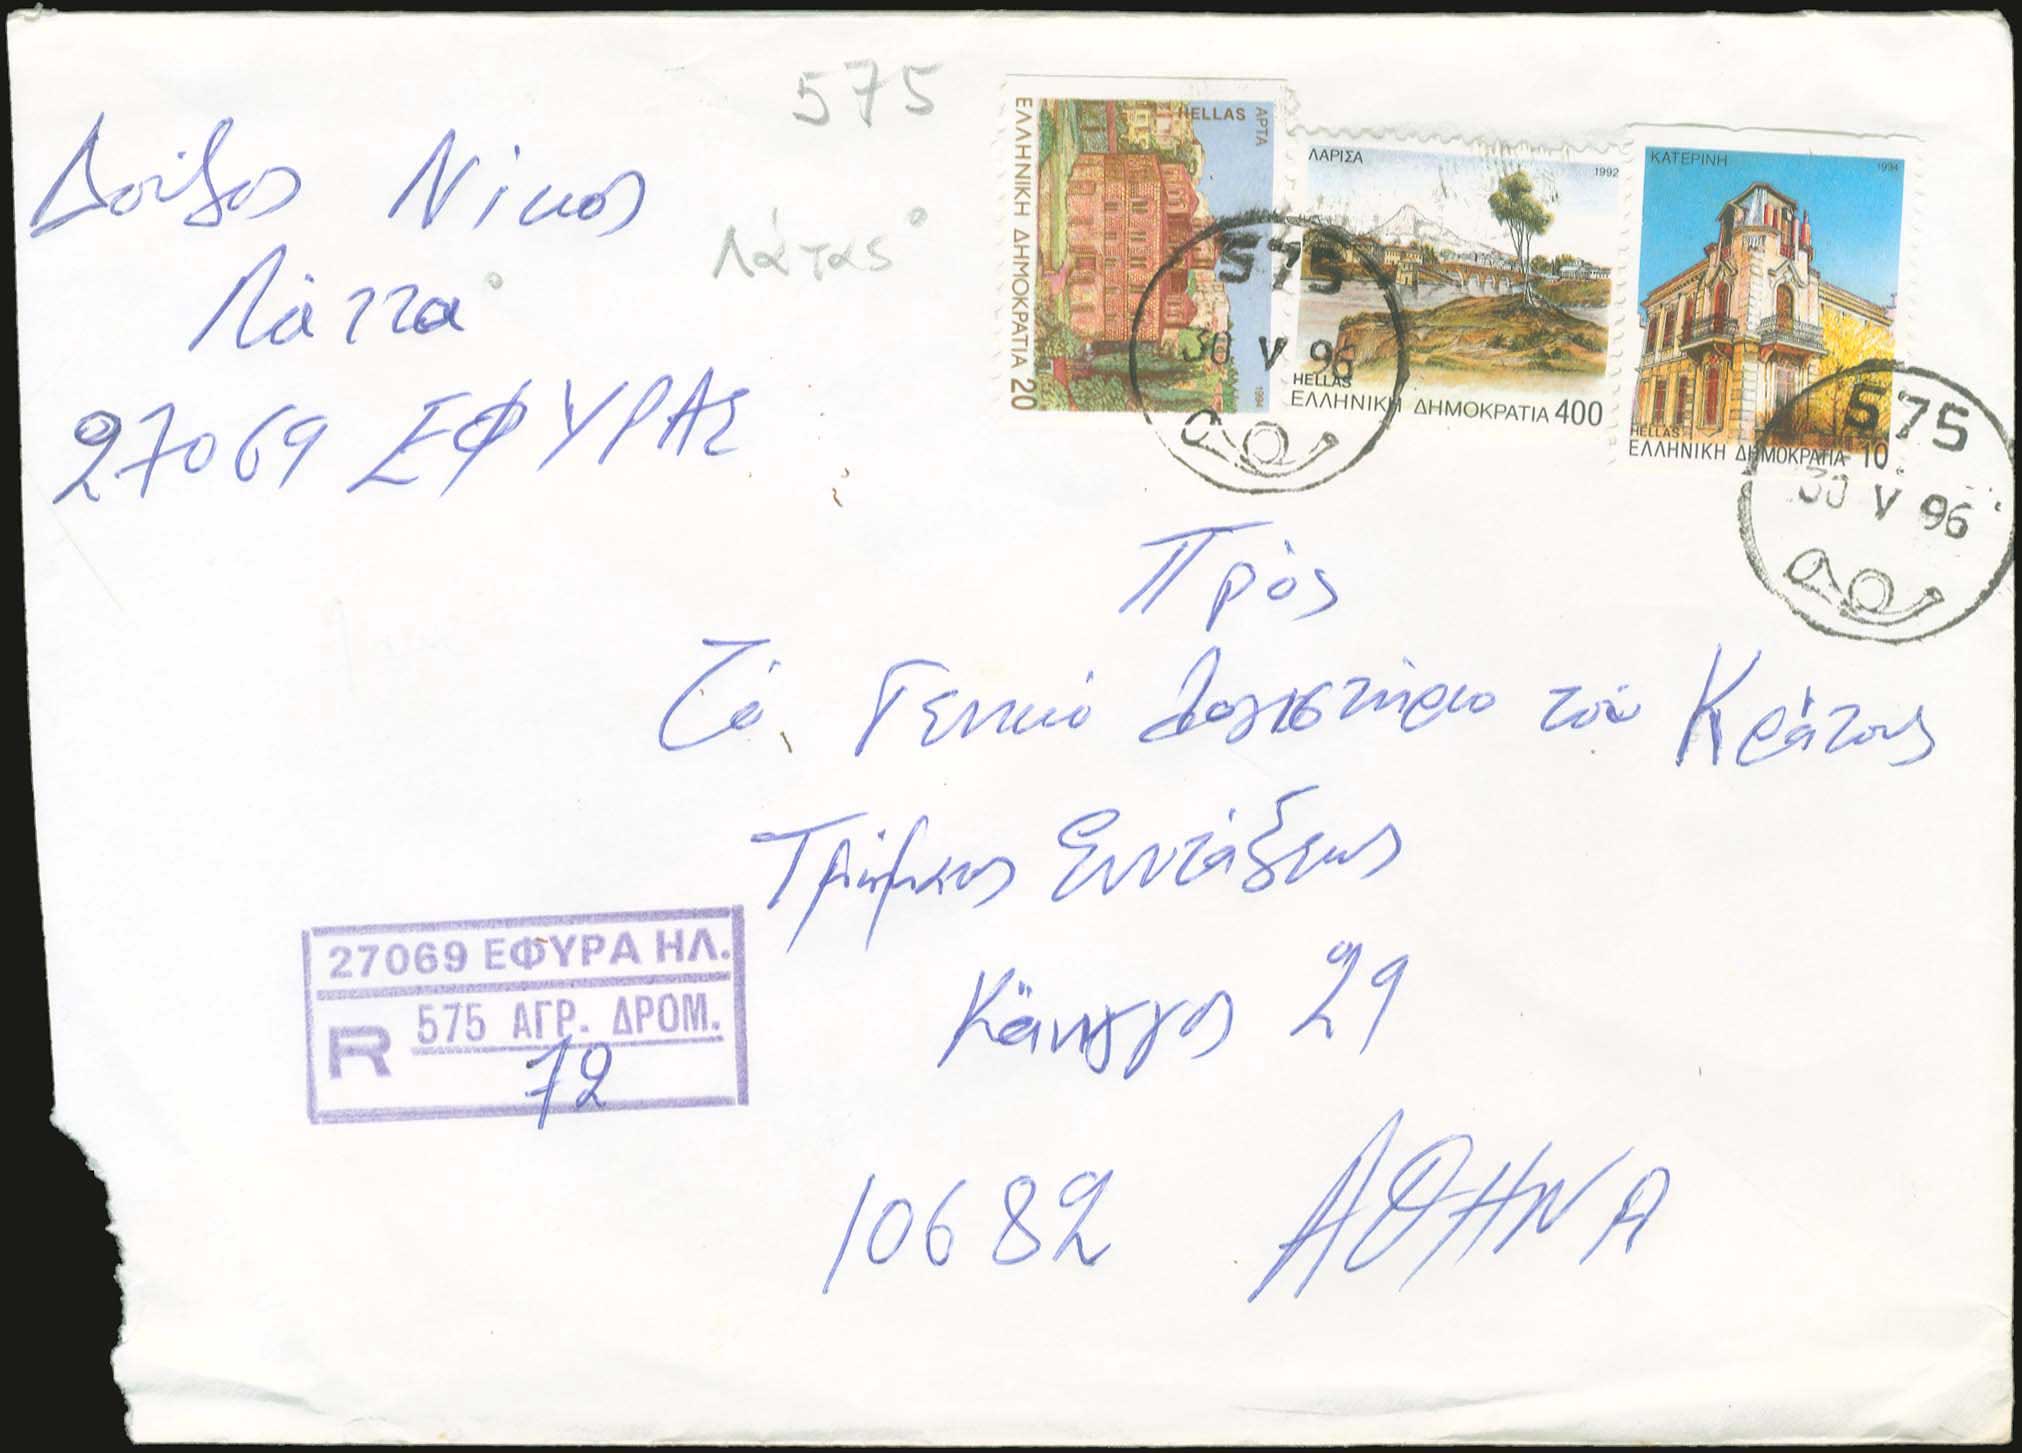 575
Δούβος Νίκος
Λάττα
Λάτας
27069 ΕΦΥΡΑΣ
ΕΛΛΗΝΙΚΗ ΔΗΜΟΚΡΑΤΙΑ 20
HELLAS
ΑΡΤΑ
1994
ΛΑΡΙΣΑ
1992
HELLAS
ΕΛΛΗΝΙΚΗ ΔΗΜΟΚΡΑΤΙΑ 400
ΚΑΤΕΡΙΝΗ
1994
HELLAS
ΕΛΛΗΝΙΚΗ ΔΗΜΟΚΡΑΤΙΑ 10
575
30 V 96
575
30 V 96
Πρός
Τό Γενικό Λογιστήριο τού Κράτους
Συντάξεως
Κάνιγγος 29
10682 ΑΘΗΝΑ
27069 ΕΦΥΡΑ ΗΛ.
R 575 ΑΓΡ. ΔΡΟΜ.
72